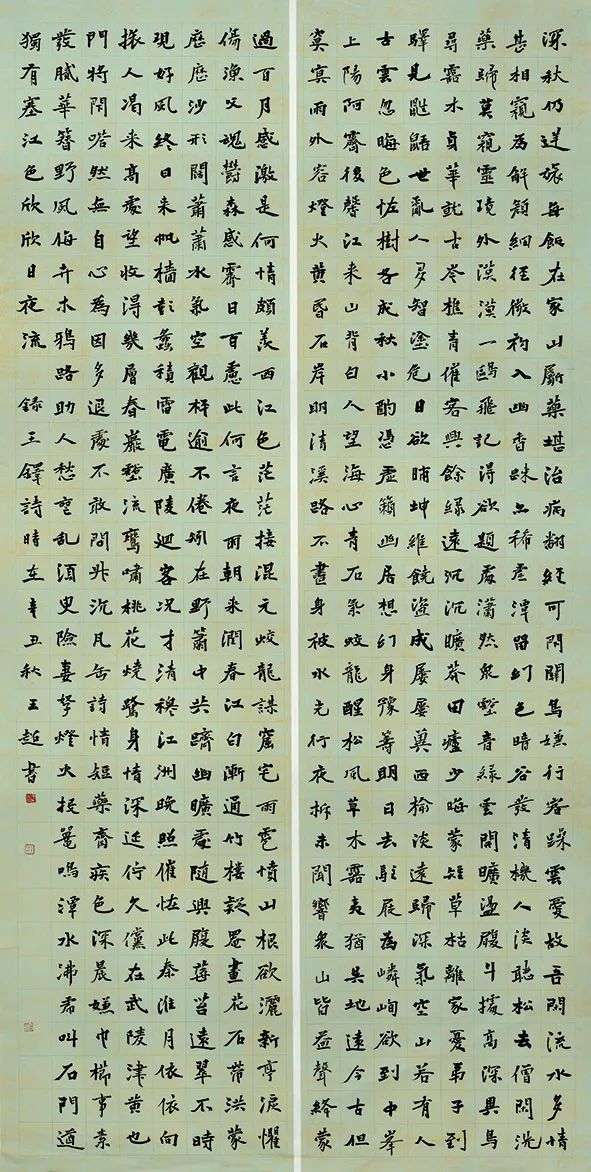 深秋仍逆旅每飽在家山厭藥堪治病翻經可閉關馬嫌行客躁雲愛故吾閒流水多情
甚相窺為解頤細徑微初入幽香趺亦稀虛潭留幻色暗谷發清機人淡聽松去僧閒洗
藥歸莫窺靈境外漠漠一鷗飛記得欲題處瀟然泉壑音綠雲閒曠盪腹斗據高深異鳥
尋露水貞華就古岑樵青催客興餘綠遠沉沉曠莽田壚少晦蒙短草枯離家憂弟子到
驛見鼪鼯世亂人多智塗危日欲晡坤維饒盜成屢屢冀西榆淡遠歸深氣空山若有人
古雲忽晦色怪樹子成秋小酌憑虛籟幽居想幻身豫籌明日去駐屐為嶙峋欲到中峯
上陽阿霽後馨江來山背白人望海心青石氣蛟龍醒松風草木露夷猶吳地遠今古但
冥冥雨外客燈火黃昏石岸明清溪路不盡身被水光行夜柝未聞響泉山皆益聲終蒙
過百月感激是何情頗羨西江色茫茫接混元蛟龍謀窟宅雨雹憤山根欲灑新亭淚懼
傷漁父魂鬱森感霽日百慮此何言夜雨朝來潤春江白漸通竹樓疑罨畫花石帶洪蒙
歷歷沙形闊蕭蕭水氣空觀梓逾不倦矧在野蕭中共躋幽曠處隨興履莓苔遠翠不時
現好風終日來帆檣彩蠡積雷電廣陵迴客況才清穆江洲晚照催怪此秦淮月依依向
人曷來高處望收得幾層春巖壑流鶯嘯桃花燒鷺身情深延佇久儻在武陵津黃也
門將閉嗒然無自心為因多退處不敢問升沉凡缶詩情短藥齋疾色深晨嫵巾櫛事素
發膩華簪野風侮卉木鴉路助人愁寇亂須臾險妻孥燈火投鼉鳴潭水沸希叫石門遒
獨有塞江色欣欣日夜流 錄王鐸詩時在辛丑秋王超書